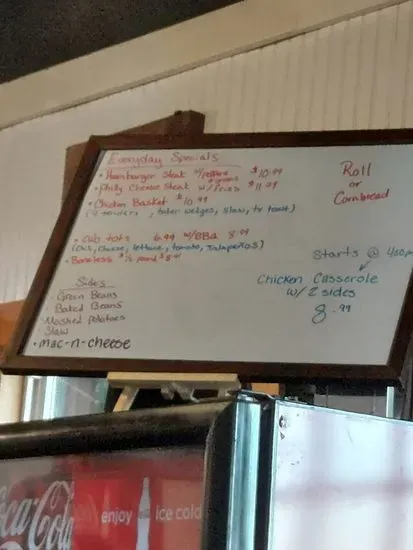 Everyday Specials
• Hamburger Steak w/ peppers + onions $10.99
• Philly Cheese Steak w/ Fries $11.99
• Chicken Basket $10.99
(4 tenders, tater wedges, slaw, tx toast)
• Club tots 6.99 w/BBQ 8.99
cheese, lettuce, tomato, Jalapeños)
• Boneless ½ pound $8.
Sides
• Green Beans
• Baked Beans
• Mashed potatoes
• Slaw
• mac-n-cheese
Roll
or
Cornbread
Starts @ 4:00pm
Chicken Casserole
w/ 2 sides
8.99
Coca-Cola
enjoy ice cold